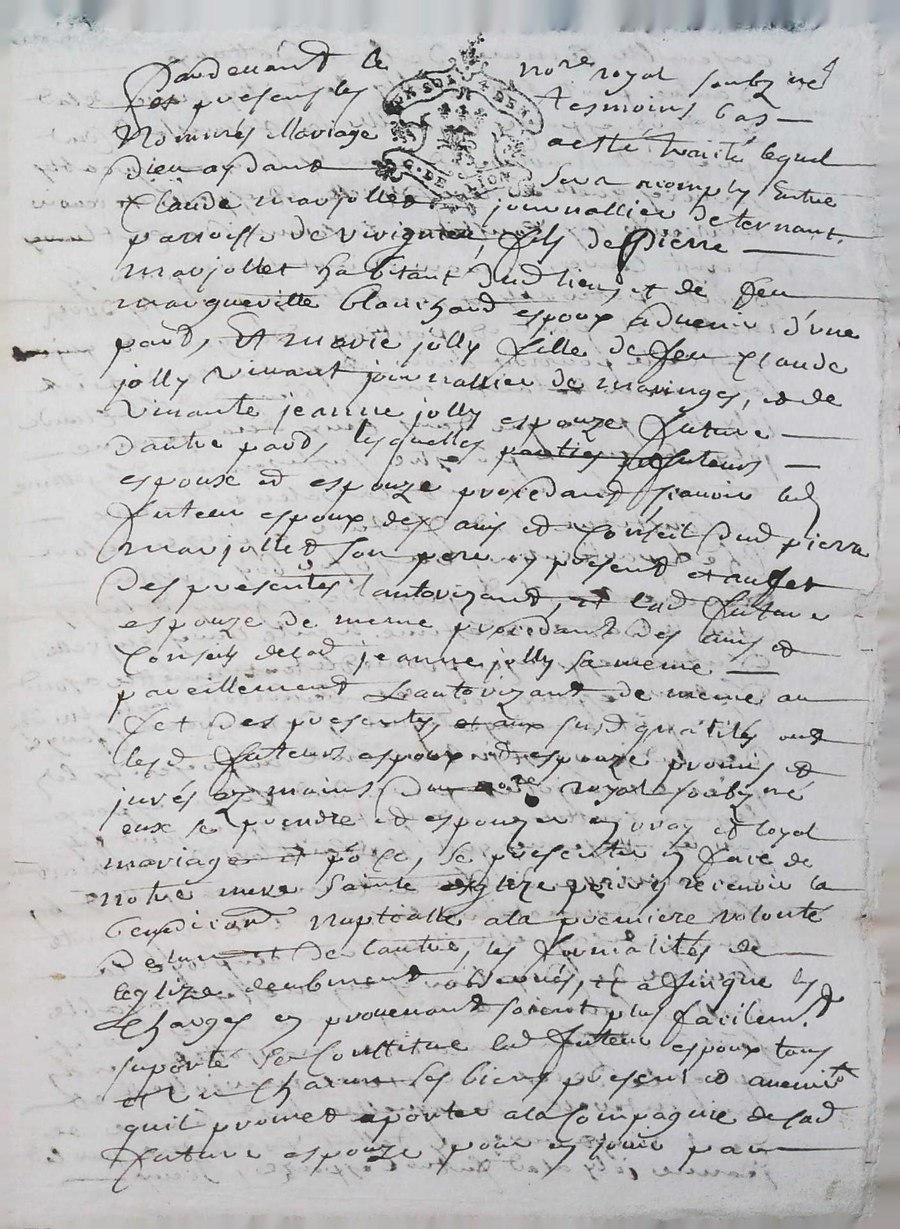 Pardevant le no.re royal soubz.né
et presens les tesmoins bas
nommés Mariage a esté traité lequel
dieu aydant sera acomply Entre
Claude marjollet journallier de ternant
parroisse de fils de Pierre
marjollet habitant dud lieu, et de feu
margueritte blanchard espoux aduenir d'vne
pard, Et marie jolly fille de feu Claude
jolly viuant journallier de maringes, et de
viuante jeanne jolly espouze future
dautre pard, lesquelles parties futeurs
espoux et espouze procedant sçauoir led
futeur espoux des auis et Conseil dud pierre
marjollet son pere cy present et au fet
des presentes lautorizant, et lad future
espouze de meme procedant des auis et
Conseils delad jeanne jolly sa mere
pareillement Lautorizant de meme au
fet des presentes, et aux susd qualités ont
lesd futeurs espoux et espouze promis et
jurés es mains du no.re royal soubz.né
eux se prendre et espouzer en vray et loyal
mariage et po.r ce, se presenter en face de
notre mere sainte esglize pour y receuoir la
benediction nuptialle ala premiere volonté
de lun et de lautre, les formalités de
leglize deubment obseruées, et afinque les
charges en prouenant soient plus facilem.t
suporté se Constitue led futeur espoux tous
et vn chacun ses biens present et auenir
quil promet aporter ala Compagnie de lad
future espouze pour en jouir par